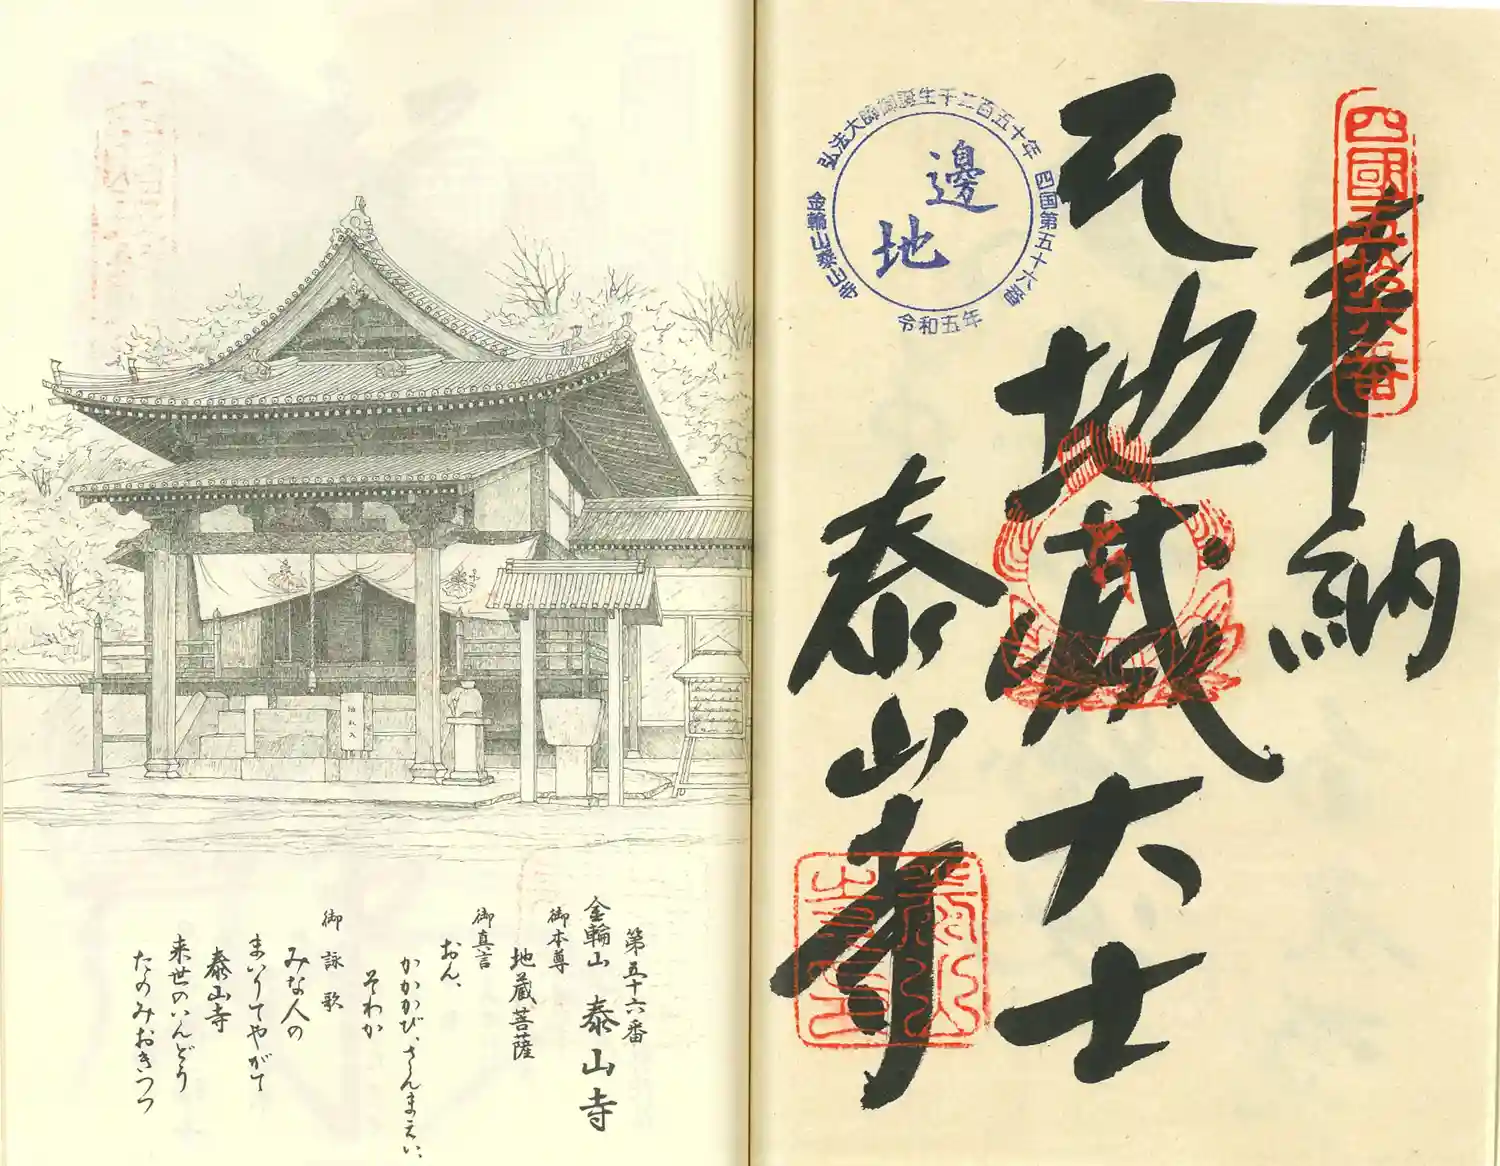 四國五拾六番
奉納
地蔵大士
泰山寺
弘法大師御誕生千二百五十年
四国第五十六番
金輪山泰山寺
令和五年
邊地
泰山寺
第五十六番
金輪山 泰山寺
御本尊
地蔵菩薩
御真言
おん、
かかかび、さんまえい、
そわか
御詠歌
みな人の
まいりてやがて
泰山寺
来世のいんどう
たのみおきつつ
納札入